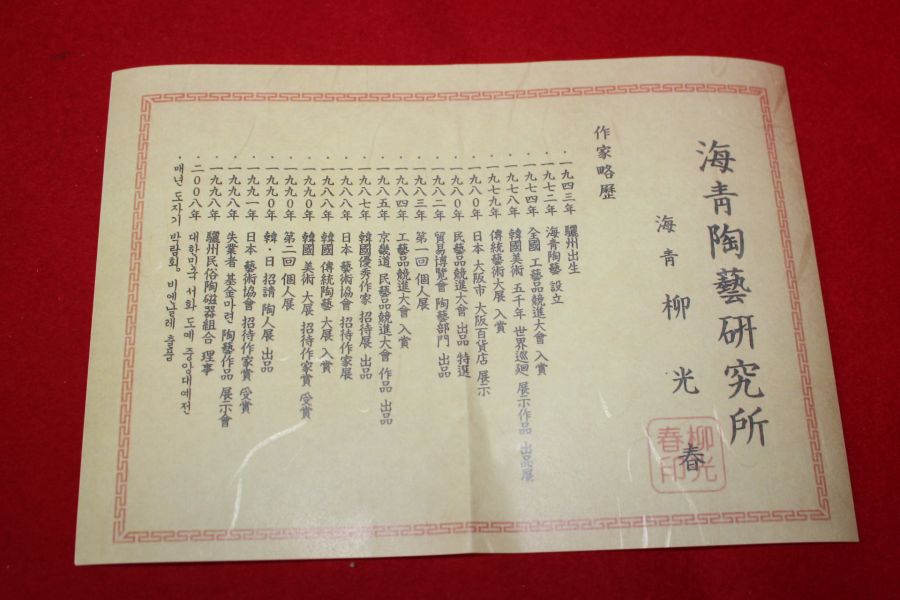 海靑陶藝硏究所
海靑 柳光春
柳光春印
作家略歷
·一九四三年 驪州出生
·一九七二年 海靑陶藝 設立
·一九七四年 全國 工藝品競進大會 入賞
·一九七八年 韓國美術 五千年 世界巡廻 展示作品 出品展
·一九七九年 傳統藝術大展 入賞
·一九八０年 日本 大阪市 大阪百貨店 展示
·一九八０年 民藝品競進大會 出品 特選
·一九八二年 貿易博覽會 陶藝部門 出品
·一九八三年 第一回 個人展
·一九八四年 工藝品競進大會 入賞
·一九八五年 京畿道 民藝品競進大會 作品 出品
·一九八七年 韓國優秀作家 招待展 出品
·一九八八年 日本 藝術協會 招待作家展
·一九八八年 韓國 傳統陶藝 大展 入賞
·一九九０年 韓國 美術 大展 招待作家賞 受賞
·一九九０年 第二回 個人展
·一九九０年 韓·日 招請 陶人展 出品
·一九九一年 日本 藝術協會 招待作家賞 受賞
·一九九八年 失業者 基金마련 陶藝作品 展示會
·一九九八年 驪州民俗陶磁器組合 理事
·二００八年 대한민국 서화 도예 중앙대예전
·매년 도자기 박람회, 비엔날레 출품